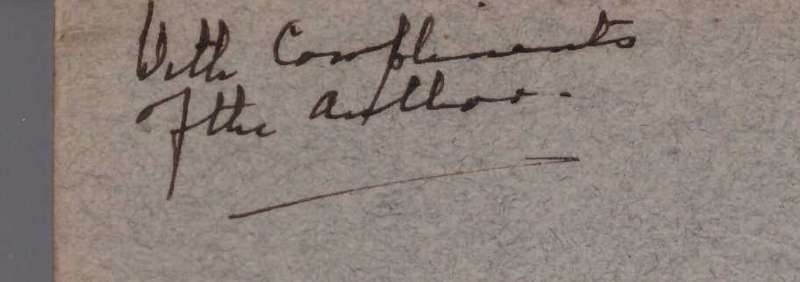 With Compliments
of the author.